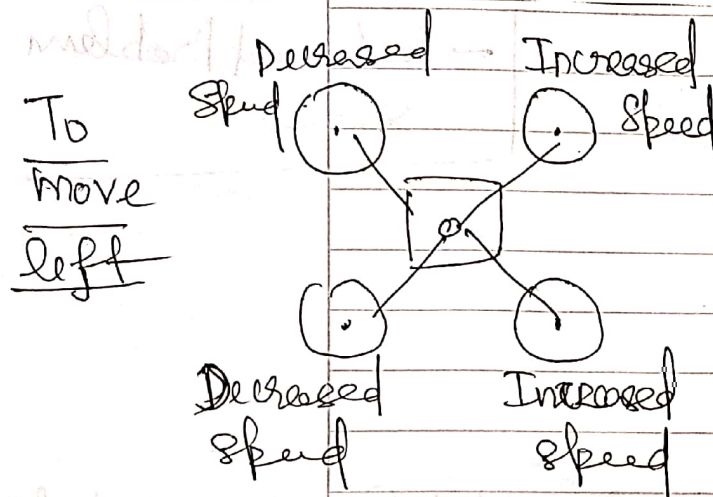 To
move
left
Decreased
Speed
Increased
Speed
Decreased
Speed
Increased
Speed